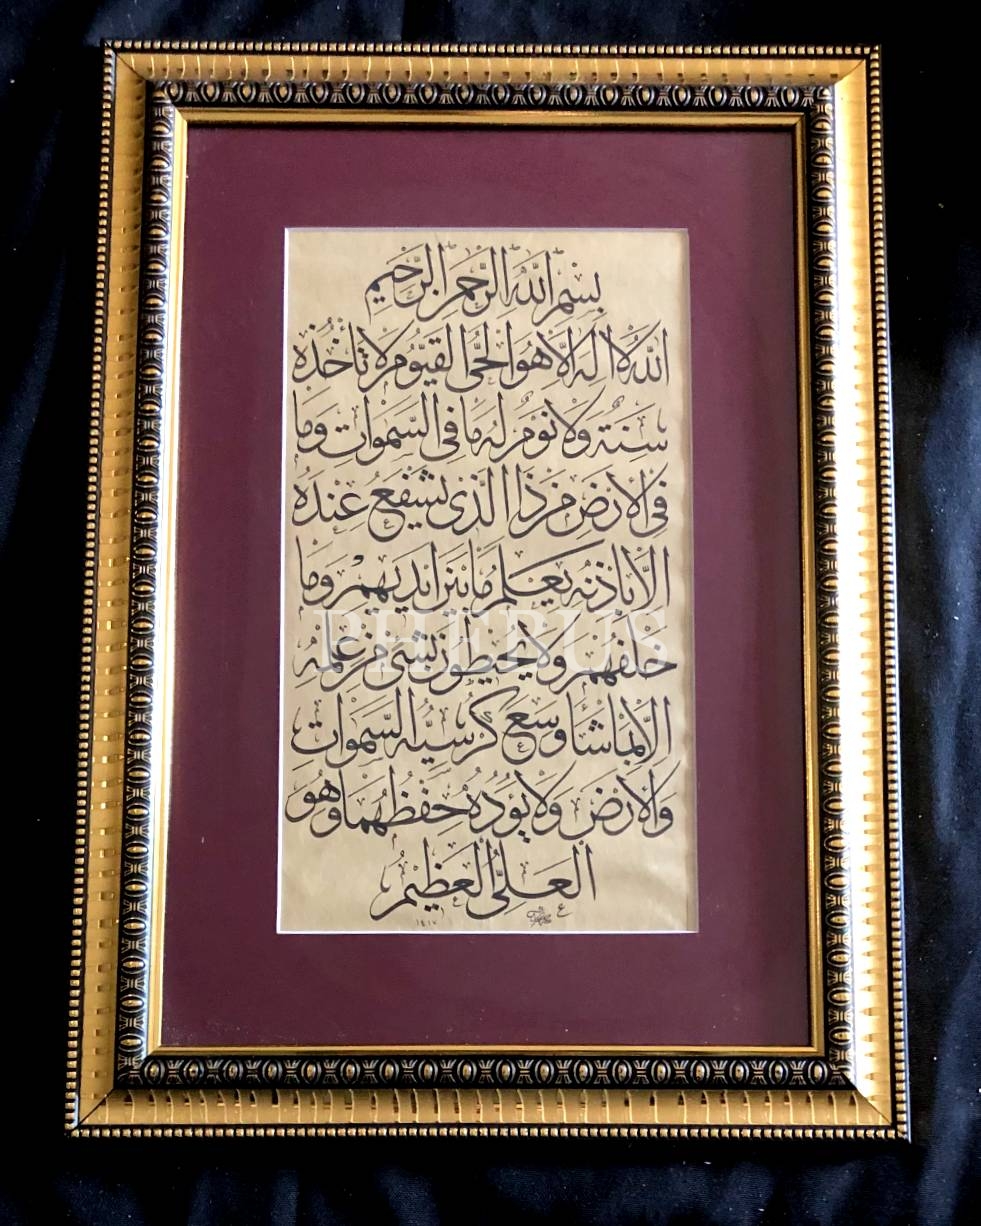 بِسْمِ اللّٰهِ الرَّحْمٰنِ الرَّحِيمِ
اَللّٰهُ لَا اِلٰهَ اِلَّا هُوَ الْحَىُّ الْقَيُّومُ لَا تَأْخُذُهُ
سِنَةٌ وَلَا نَوْمٌ لَهُ مَا فِى السَّمٰوَاتِ وَمَا
فِى الْاَرْضِ مَنْ ذَا الَّذِى يَشْفَعُ عِنْدَهُ
اِلَّا بِاِذْنِهِ يَعْلَمُ مَا بَيْنَ اَيْدِيهِمْ وَمَا
خَلْفَهُمْ وَلَا يُحِيطُونَ بِشَىْءٍ مِنْ عِلْمِهِ
اِلَّا بِمَا شَاءَ وَسِعَ كُرْسِيُّهُ السَّمٰوَاتِ
وَالْاَرْضَ وَلَا يَؤُدُهُ حِفْظُهُمَا وَهُوَ
الْعَلِىُّ الْعَظِيمُ
PHEBUS